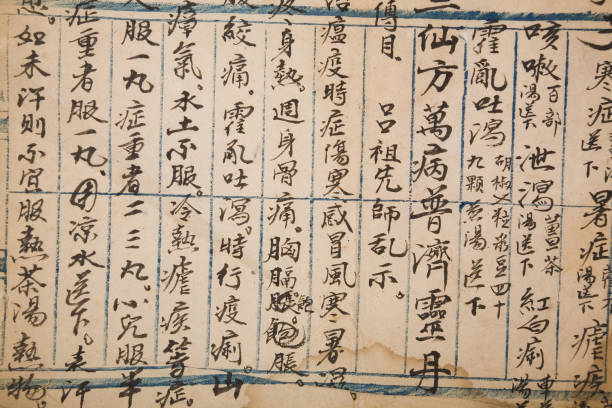 寒症送下 暑症湯送下 瘧疾
咳嗽百部湯送下 泄瀉薑茶湯送下 紅白痢
霍亂吐瀉胡椒九顆菉豆四十粒湯送下
三仙方萬病普濟靈丹
傳目 呂祖先師乩示。
瘟疫時症傷寒感冒風寒暑濕。
身熱。週身骨痛。胸膈飽脹。
絞痛。霍亂吐瀉。時行疫痢。山
瘴氣、水土不服。冷熱瘧疾等症。
服一丸症重者二三九。小兒服半
症重者服一丸、用凉水送下。表汗
如未汗則不宜服熱茶湯熱物。